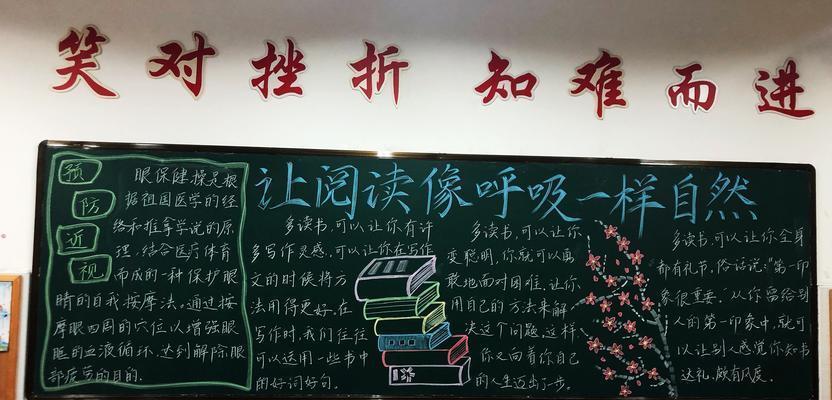 笑对挫折 知难而进
让阅读像呼吸一样自然
预防近视
眼保健操是根
据祖国医学的经
络和推拿学说的原
理,结合医疗体育
而成的一种保护眼
睛的自我按摩法,通过按
摩眼四周的穴位以增强眼
眶的血液循环,达到解除眼
部疲劳的目的.
多读书,可以让你有许
多写作灵感,可以让你在写作
文的时候将方
法用得更好.在
写作时,我们往往
可以运用一些书中
的好词好句.
多读书,可以让你
变聪明,你就可以勇
敢地面对困难.让你
用自己的方法来解
决这个问题.这样
你又向着你自己
的人生迈出了一步.
多读书,可以让你全身
都有礼节,俗话说:“第一印
象很重要.”从你留给别
人的第一印象中,就可
以让别人感觉你知书
达礼,颇有风度.